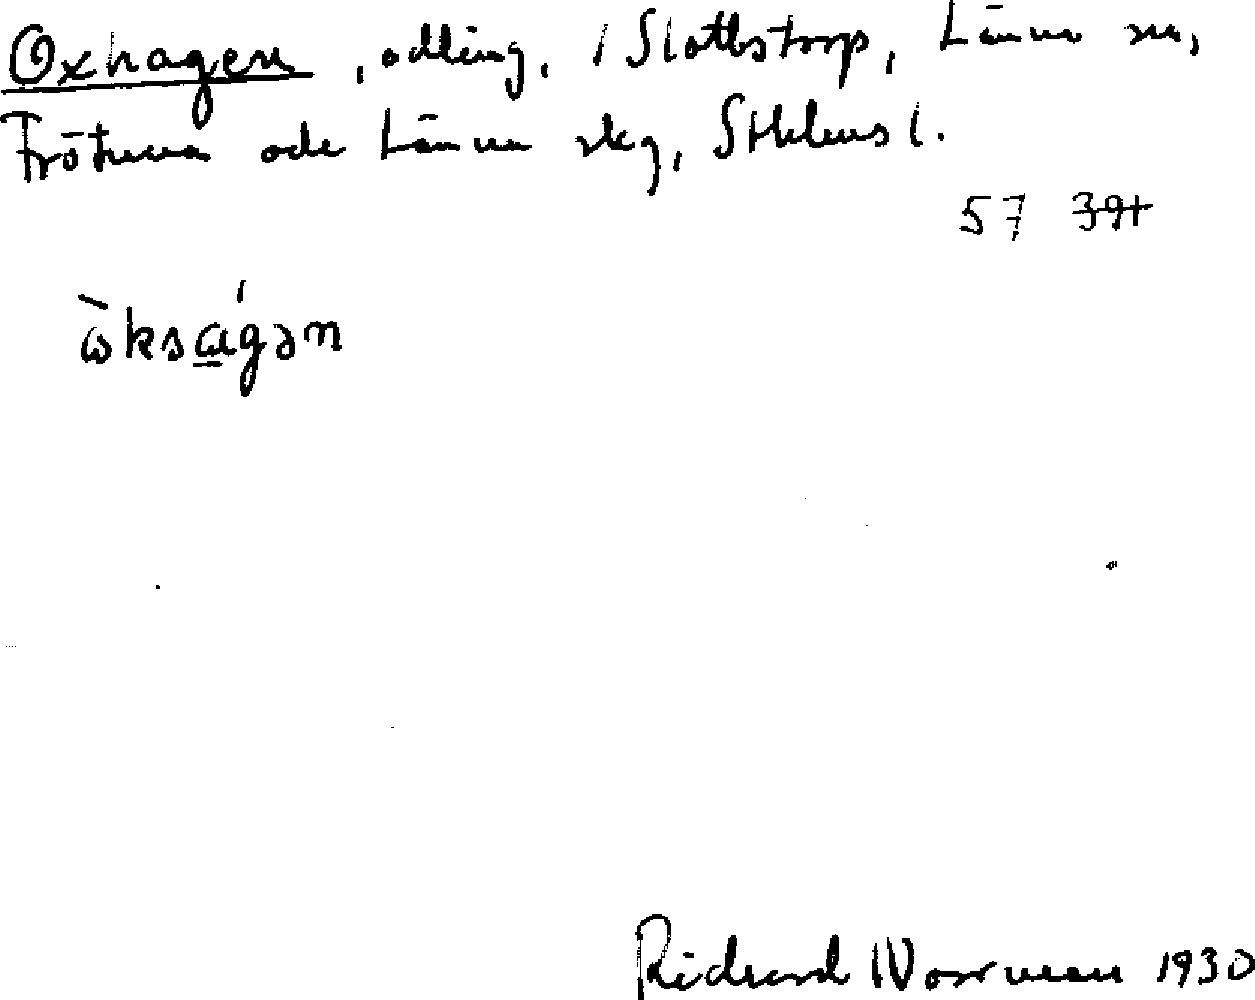 Oxhagen, odling, i Slottstorp, Länna sn,
Frötuna och Länna skg, Sthlms l.
57 391
òksɑ́gən
Richard Norrman 1930